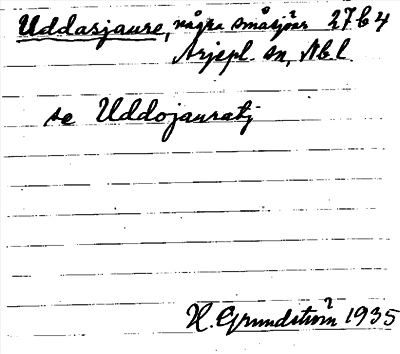 Uddasjaure, några småsjöar 27 b 4
Arjepl. sn, Nbl.
se Uddojauratj
H. Grundström 1935